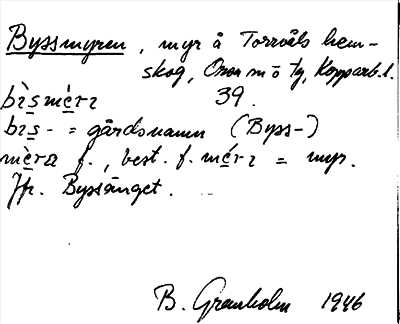 Byssmyren, myr å Torrvåls hem-
skog, Orsa m o ty, Kopparb. l.
bìsmèrɿ 39.
bɿs- = gårdsnamn (Byss-)
mèra f., best. f. mérɿ = myr.
Jfr. Byssänget.
B. Granholm 1946